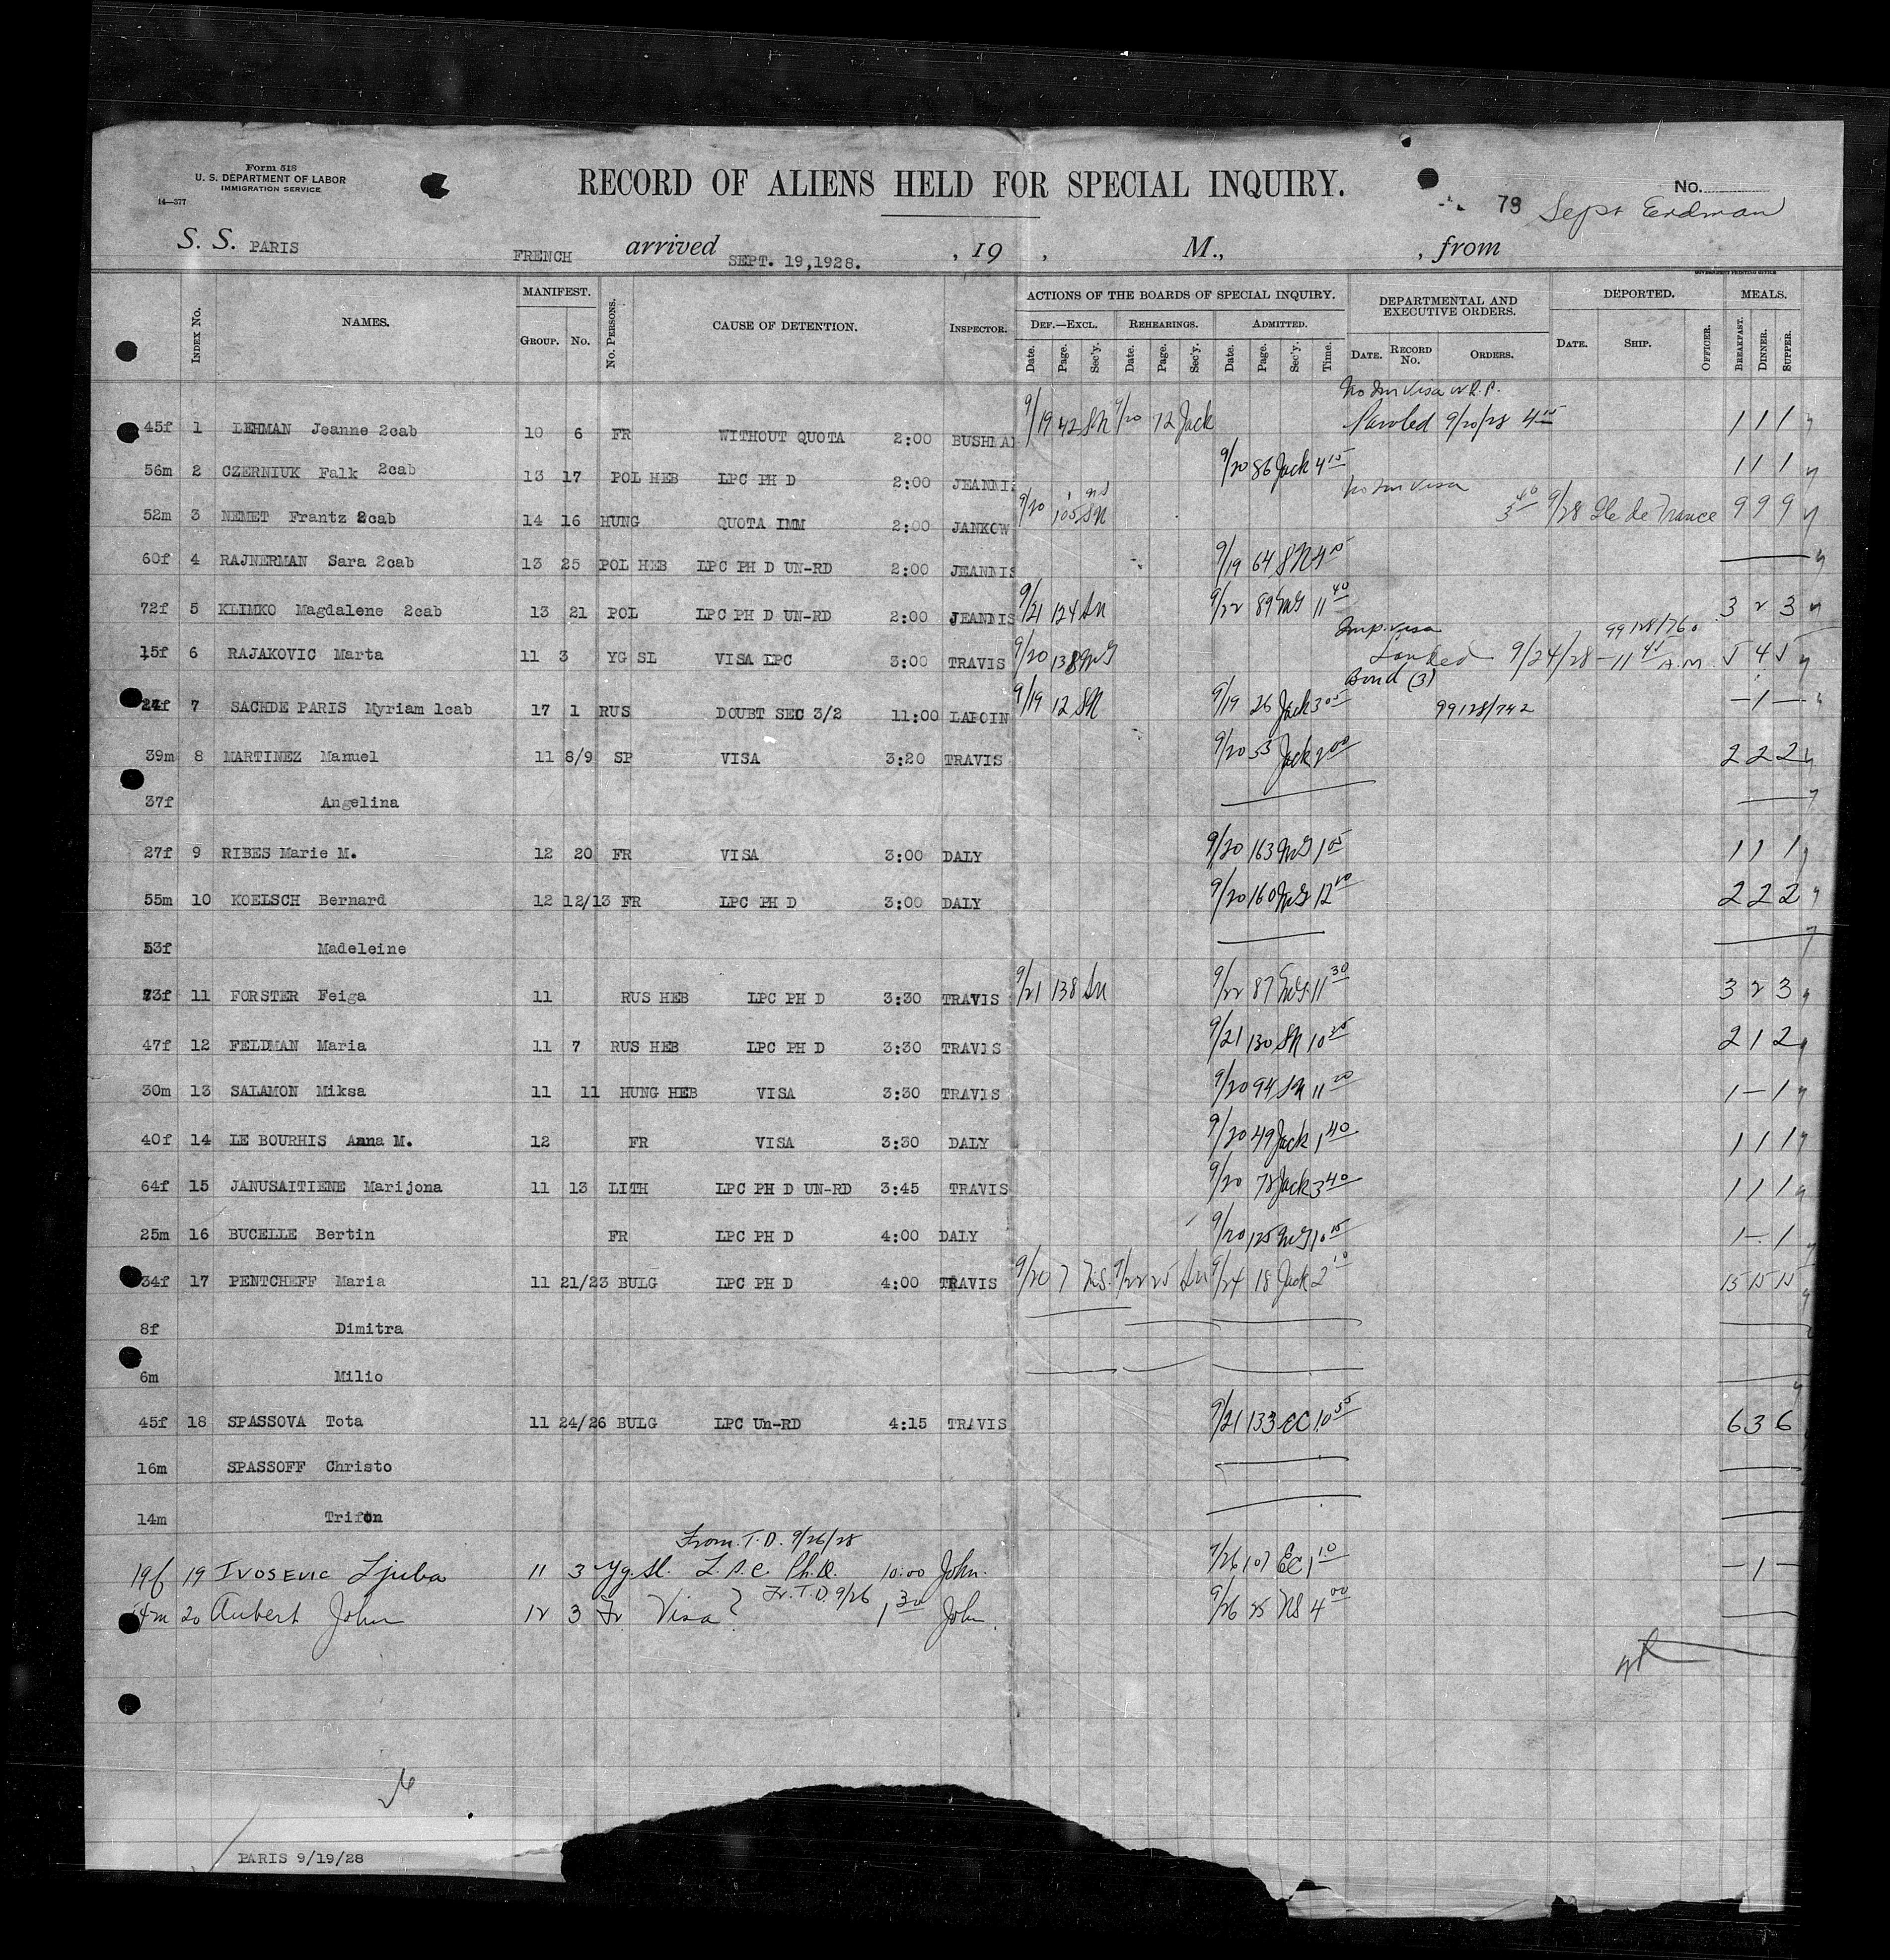 Form 518
U. S. DEPARTMENT OF LABOR
IMMIGRATION SERVICE
14—377
RECORD OF ALIENS HELD FOR SPECIAL INQUIRY.
79 Sept Erdman No.
S. S. PARIS FRENCH arrived SEPT. 19,1928. , 19 , M., , from
GOVERNMENT PRINTING OFFICE
Index No. NAMES. MANIFEST. No. Persons. CAUSE OF DETENTION. Inspector. ACTIONS OF THE BOARDS OF SPECIAL INQUIRY. DEPARTMENTAL AND EXECUTIVE ORDERS. DEPORTED. MEALS.
Group. No. Def.—Excl. Rehearings. Admitted. Date. Record No. Orders. Date. Ship. Officer. Breakfast. Dinner. Supper.
Date. Page. Sec'y. Date. Page. Sec'y. Date. Page. Sec'y. Time.
No Im Visa N.R.P.
45f 1 LEHMAN Jeanne 2cab 10 6 FR WITHOUT QUOTA 2:00 BUSHLA 9/19 42 SN 9/20 12 Jack Paroled 9/20/28 1 1 1
56m 2 CZERNIUK Falk 2cab 13 17 POL HEB LPC PH D 2:00 JEANNI 9/20 86 Jack 4 15 1 1 1
No Im Visa
52m 3 NEMET Frantz 2cab 14 16 HUNG QUOTA IMM 2:00 JANKOW 9/20 105 SN 3 40 9/28 Ile de France 9 9 9
60f 4 RAJNERMAN Sara 2cab 13 25 POL HEB LPC PH D UN-RD 2:00 JEANNIS 9/19 64 SN
72f 5 KLIMKO Magdalene 2cab 13 21 POL LPC PH D UN-RD 2:00 JEANNIS 9/21 124 SN 9/22 89 McG 11 40 3 2 3
Imp. visa 99128/760
15f 6 RAJAKOVIC Marta 11 3 YG SL VISA LPC 3:00 TRAVIS 9/20 138 McG Landed 9/24/28 — 11 45 A.M. 5 4 5
Bond (3)
24f 7 SACHDE PARIS Myriam 1cab 17 1 RUS DOUBT SEC 3/2 11:00 LAPOIN 9/19 12 SN 9/19 26 Jack 3 05 99128/742 — 1 —
39m 8 MARTINEZ Manuel 11 8/9 SP VISA 3:20 TRAVIS 9/20 53 Jack 2 00 2 2 2
37f Angelina
27f 9 RIBES Marie M. 12 20 FR VISA 3:00 DALY 9/20 163 McG 1 05 1 1 1
55m 10 KOELSCH Bernard 12 12/13 FR LPC PH D 3:00 DALY 9/20 160 McG 12 2 2 2
53f Madeleine
73f 11 FORSTER Feiga 11 RUS HEB LPC PH D 3:30 TRAVIS 9/21 138 SN 9/22 87 McG 11 30 3 2 3
47f 12 FELDMAN Maria 11 7 RUS HEB LPC PH D 3:30 TRAVIS 9/21 130 SN 10 2 1 2
30m 13 SALAMON Miksa 11 11 HUNG HEB VISA 3:30 TRAVIS 9/20 94 SN 11 20 1 — 1
40f 14 LE BOURHIS Anna M. 12 FR VISA 3:30 DALY 9/20 49 Jack 1 40 1 1 1
64f 15 JANUSAITIENE Marijona 11 13 LITH LPC PH D UN-RD 3:45 TRAVIS 9/20 78 Jack 3 40 1 1 1
25m 16 BUCELLE Bertin FR LPC PH D 4:00 DALY 9/20 125 McG 10 15 1 — 1
34f 17 PENTCHEFF Maria 11 21/23 BULG LPC PH D 4:00 TRAVIS 9/20 7 N.S. 9/22 25 SN 9/24 18 Jack 2 10 15 15 15
8f Dimitra
6m Milio
45f 18 SPASSOVA Tota 11 24/26 BULG LPC Un-RD 4:15 TRAVIS 9/21 133 EC 10 55 6 3 6
16m SPASSOFF Christo
14m Trifon
From. T. D. 9/26/28
19f 19 IVOSEVIC Ljuba 11 3 Yg. Sl. L. P. C. Ph.D. 10:00 John. 9/26 107 EC 1 10 — 1 —
Fr. T. D. 9/26
20 Aubert John 12 3 Fr. Visa 1 30 John. 9/26 NS 4 00
PARIS 9/19/28